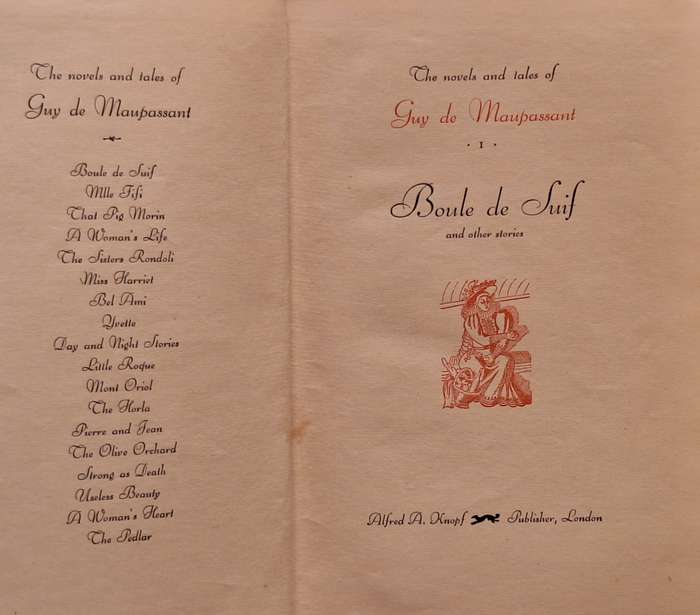 The novels and tales of
Guy de Maupassant
Boule de Suif
Mlle Fifi
That Pig Morin
A Woman's Life
The Sisters Rondoli
Miss Harriet
Bel Ami
Yvette
Day and Night Stories
Little Roque
Mont Oriol
The Horla
Pierre and Jean
The Olive Orchard
Strong as Death
Useless Beauty
A Woman's Heart
The Pedlar
The novels and tales of
Guy de Maupassant
· I ·
Boule de Suif
and other stories
Alfred A. Knopf Publisher, London